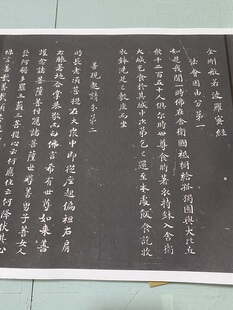 金剛般若波羅蜜經
法會因由分第一
如是我聞一時佛在舍衛國祇樹給孤獨園與大比丘
衆千二百五十人俱爾時世尊食時著衣持鉢入舍衛
大城乞食於其城中次第乞已還至本處飯食訖收
衣鉢洗足已敷座而坐
善現啟請分第二
時長老須菩提在大衆中即從座起偏袒右肩
右膝著地合掌恭敬而白佛言希有世尊如來善
護念諸菩薩善付囑諸菩薩世尊善男子善女人
發阿耨多羅三藐三菩提心云何應住云何降伏其心
佛言善哉善哉須菩提